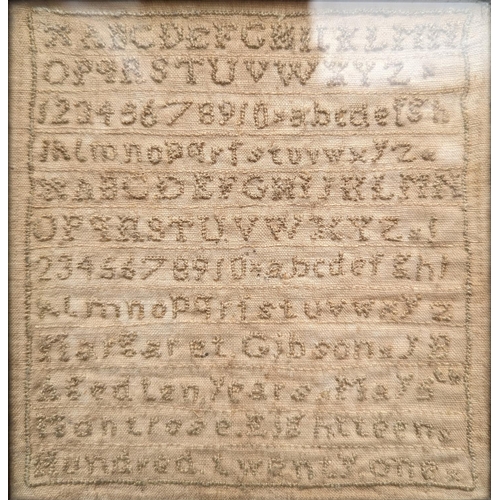 ABCDEFGHIJKLMN
OPQRSTUVWXYZ
12345678910 abcdefgh
iklmnopqrſstuvwxyz
ABCDEFGHIJKLMN
OPQRSTUVWXYZ 1
2345678910 abcdefghi
klmnopqrſstuvwxyz
Margaret Gibson
Aged ten years May 5th
Montrose Eighteen
Hundred twenty one